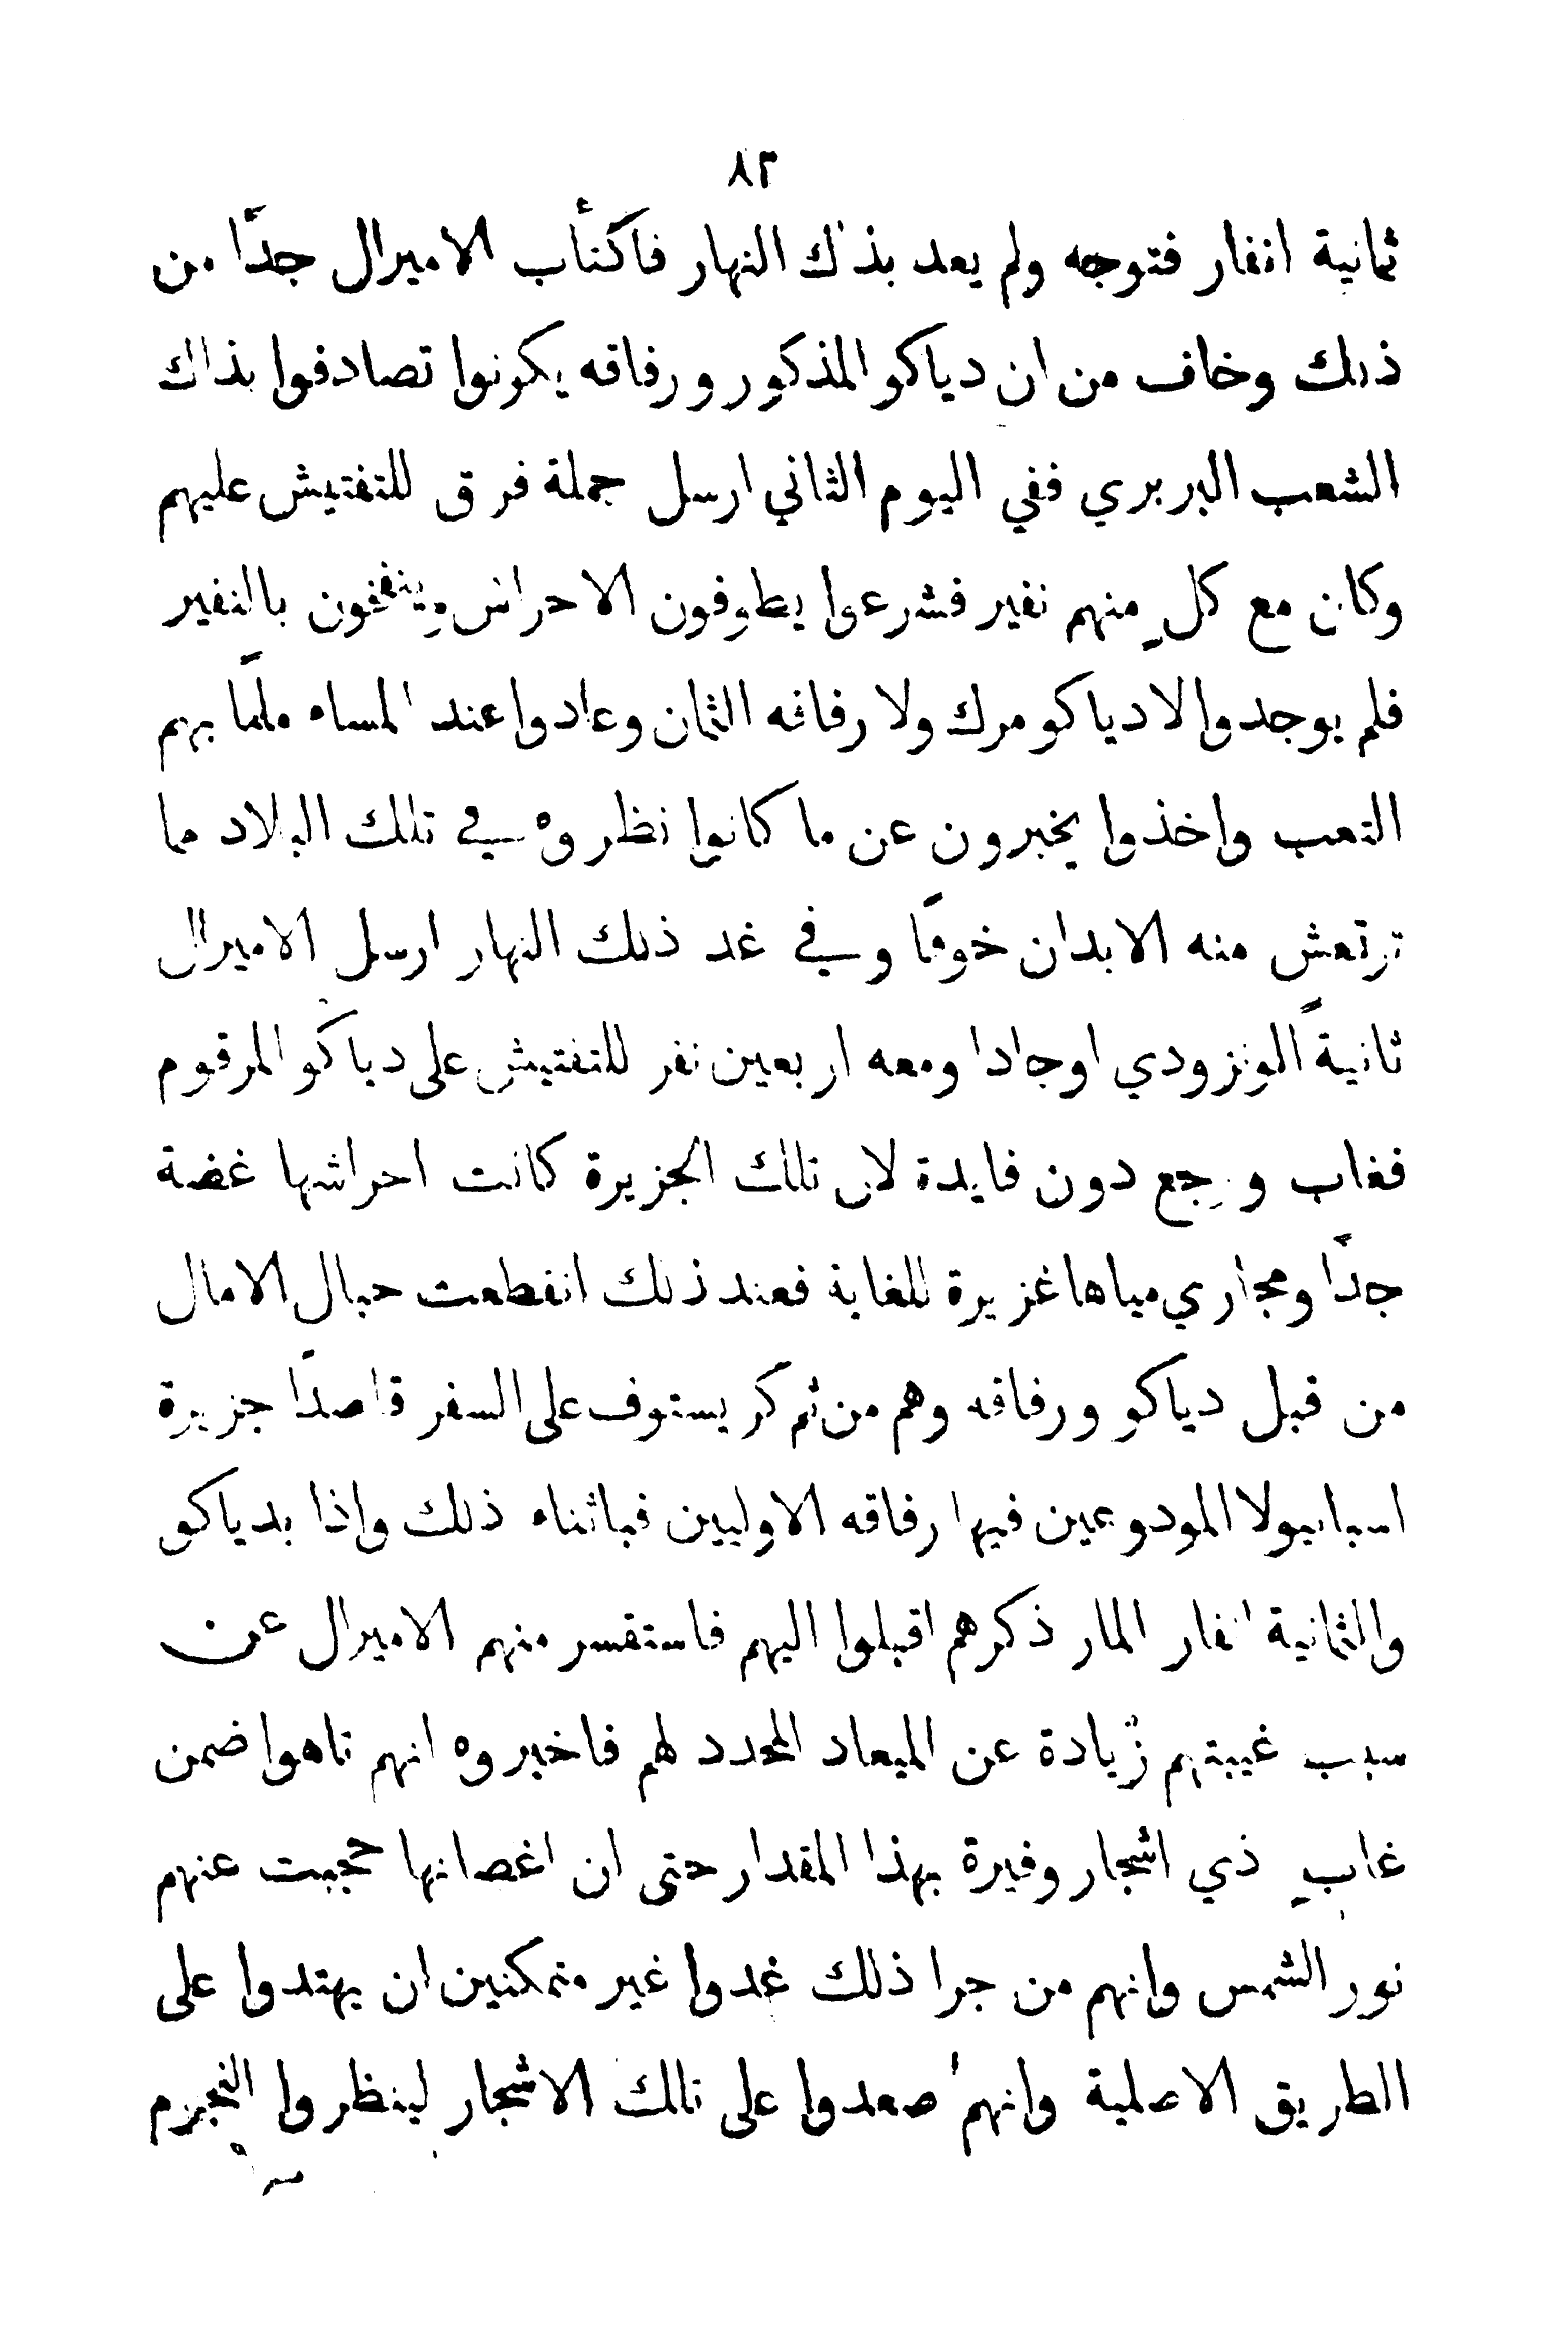 ٨٢
ثمانية انفار فتوجه ولم يعد بذلك النهار فاكتأب الاميرال جدًا من
ذلك وخاف من ان دياكو المذكور ورفاقه يكونوا تصادفوا بذلك
الشعب البربري ففي اليوم الثاني ارسل جملة فرق للتفتيش عليهم
وكان مع كلٍ منهم نفير فشرعوا يطوفون الاحراش وينفخون بالنفير
فلم يوجدوا لا دياكو مرك ولا رفاقه الثمان وعادوا عند المساء ملمًا بهم
التعب واخذوا يخبرون عن ما كانوا نظروه في تلك البلاد مما
ترتعش منه الابدان خوفًا وفي غد ذلك النهار ارسل الاميرال
ثانيةً الونزودي اوجادا ومعه اربعين نفر للتفتيش على دياكو المرقوم
فغاب ورجع دون فايدة لان تلك الجزيرة كانت احراشها غضة
جدًا ومجاري مياها غزيرة للغاية فعند ذلك انقطعت حبال الامال
من قبل دياكو ورفاقه وهم من ثم كريستوف على السفر قاصدًا جزيرة
اسبانيولا المودوعين فيها رفاقه الاوليين فباثناء ذلك واذا بدياكو
والثمانية انفار المار ذكرهم اقبلوا اليهم فاستفسر منهم الاميرال عن
سبب غيبتهم زيادة عن الميعاد المحدد لهم فاخبروه انهم تاهوا ضمن
غابٍ ذي اشجار وفيرة بهذا المقدار حتى ان اغصانها حجبت عنهم
نور الشمس وانهم من جرا ذلك غدوا غير متمكنين ان يهتدوا على
الطريق الاصلية وانهم صعدوا على تلك الاشجار لينظروا النجوم